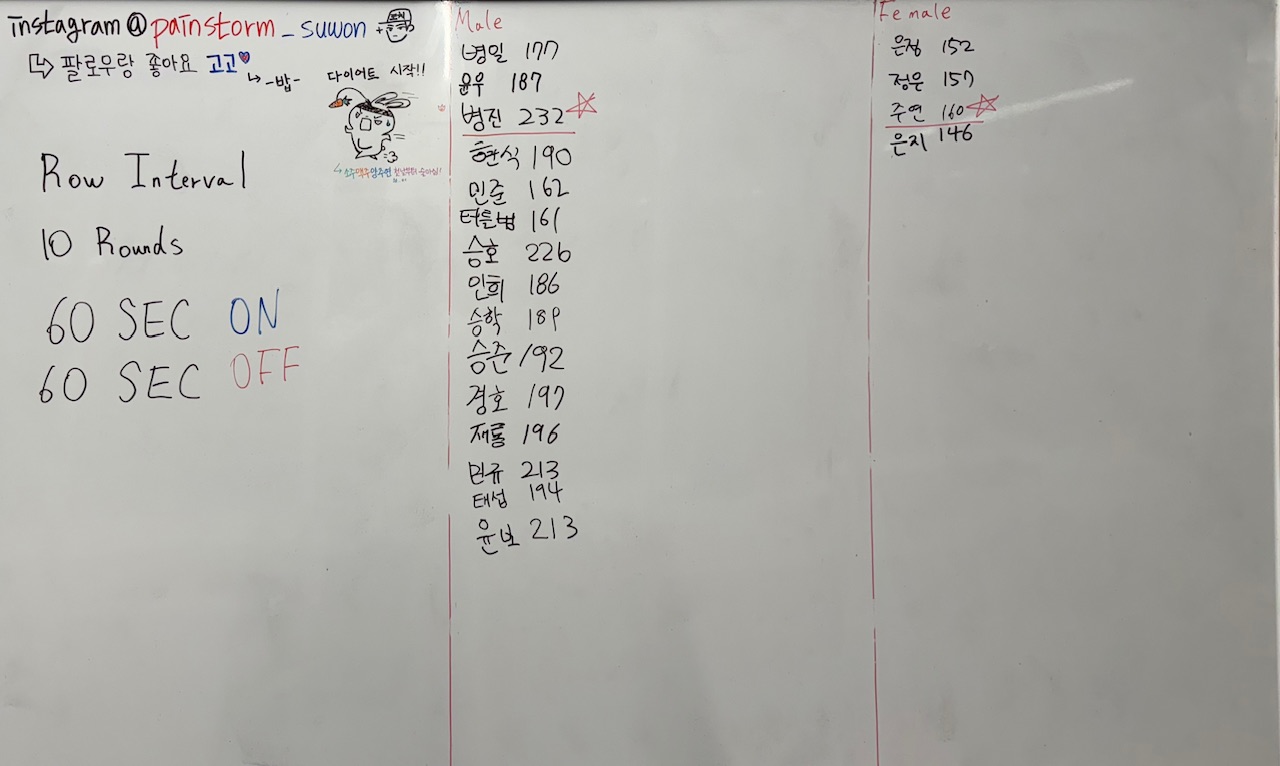 instagram@painstorm_suwon
팔로우랑 좋아요 고고
-밥-
다이어트 시작!!
소주맥주양주연
Row Interval
10 Rounds
60 SEC ON
60 SEC OFF
Male
병일 177
윤우 187
병진 232
현식 190
민준 162
터틀범 161
승호 226
인희 186
승학 189
승준 192
경호 197
재룡 196
민규 213
태섭 194
윤보 213
Female
은정 152
정은 157
주연 160
은지 146